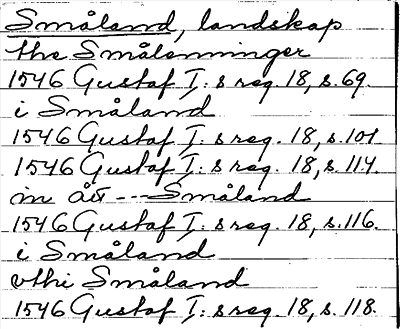 Småland, landskap
the Smålenninger
1546 Gustaf I:s reg. 18, s. 69.
i Småland
1546 Gustaf I:s reg. 18, s. 101
1546 Gustaf I:s reg. 18, s. 114.
in åt --- Småland
1546 Gustaf I:s reg. 18, s. 116.
i Småland
vthi Småland
1546 Gustaf I:s reg. 18, s. 118.